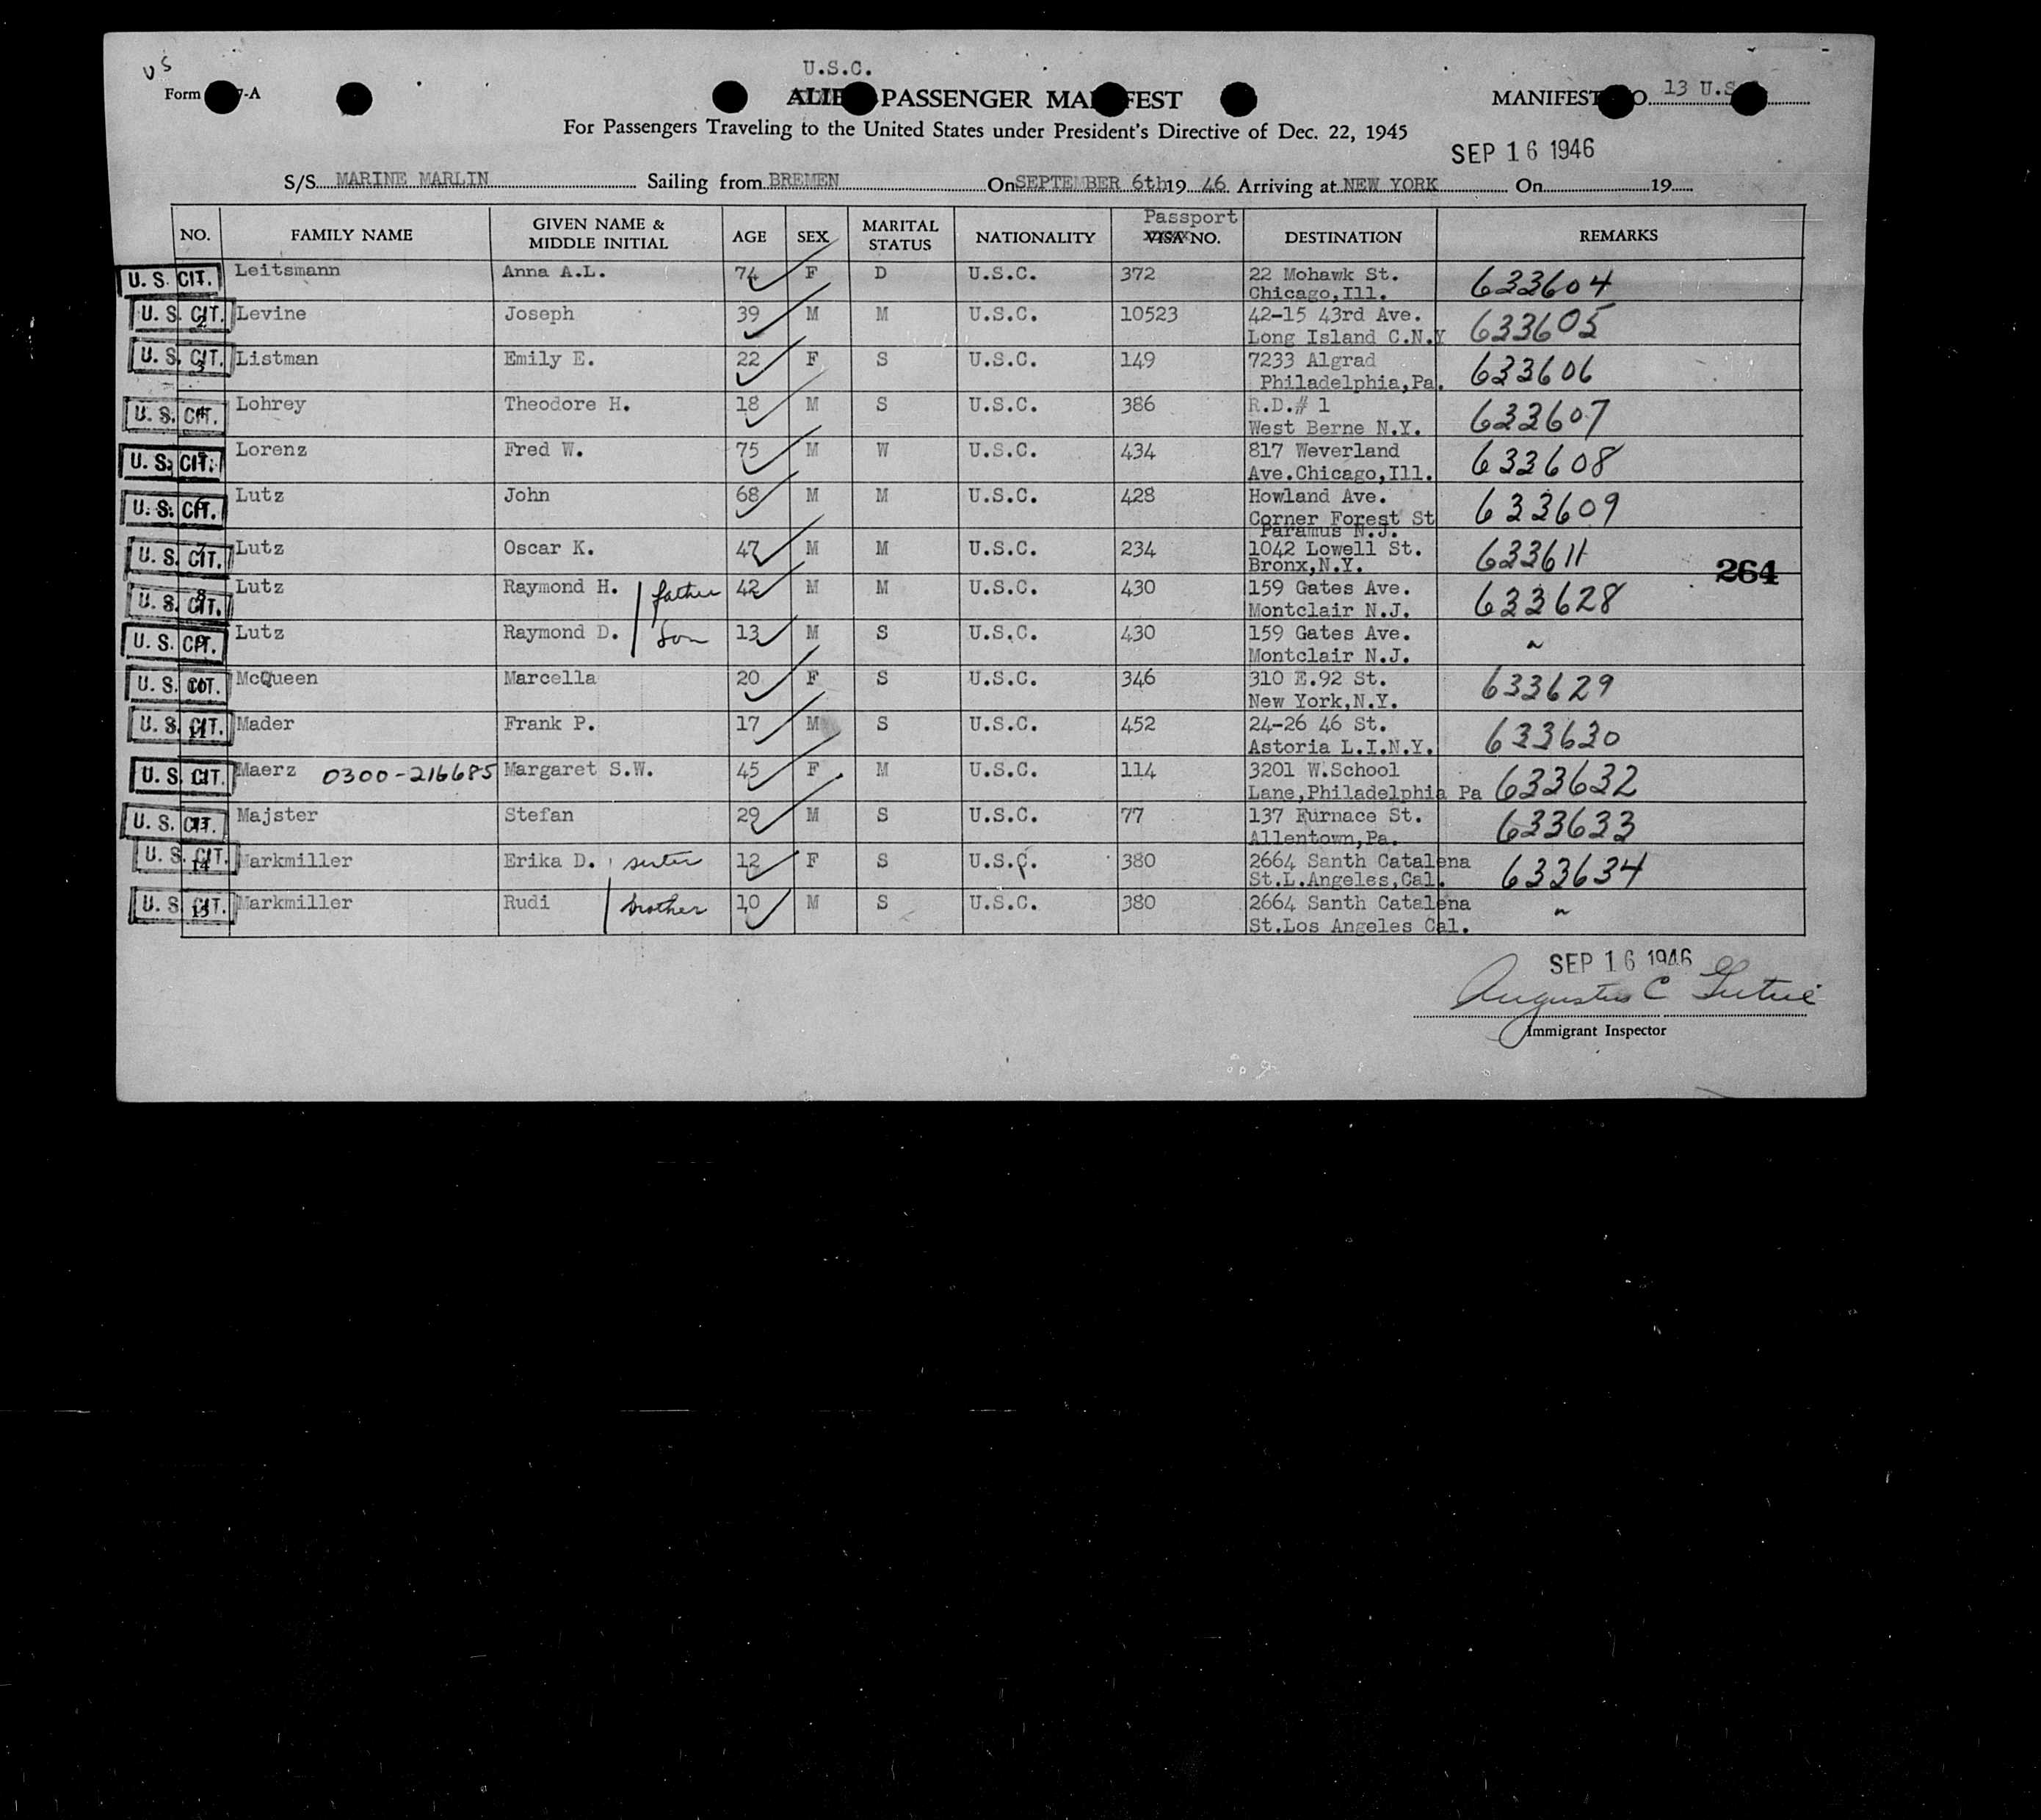 US
U.S.C.
Form -A
ALIEN PASSENGER MANIFEST
MANIFEST NO. 13 U.S.
For Passengers Traveling to the United States under President's Directive of Dec. 22, 1945
SEP 16 1946
S/S MARINE MARLIN Sailing from BREMEN On SEPTEMBER 6th 19 46 Arriving at NEW YORK On 19
NO. FAMILY NAME GIVEN NAME & MIDDLE INITIAL AGE SEX MARITAL STATUS NATIONALITY Passport VISA NO. DESTINATION REMARKS
U. S. CIT. 1 Leitsmann Anna A.L. 74 F D U.S.C. 372 22 Mohawk St. 633604
Chicago,Ill.
U. S. CIT. 2 Levine Joseph 39 M M U.S.C. 10523 42-15 43rd Ave. 633605
Long Island C.N.Y
U. S. CIT. 3 Listman Emily E. 22 F S U.S.C. 149 7233 Algrad 633606
Philadelphia,Pa.
U. S. CIT. 4 Lohrey Theodore H. 18 M S U.S.C. 386 R.D.# 1 633607
West Berne N.Y.
U. S. CIT. 5 Lorenz Fred W. 75 M W U.S.C. 434 817 Weverland 633608
Ave.Chicago,Ill.
U. S. CIT. 6 Lutz John 68 M M U.S.C. 428 Howland Ave. 633609
Corner Forest St
Paramus N.J.
U. S. CIT. 7 Lutz Oscar K. 47 M M U.S.C. 234 1042 Lowell St. 633611
Bronx,N.Y.
264
U. S. CIT. 8 Lutz Raymond H. father 42 M M U.S.C. 430 159 Gates Ave. 633628
Montclair N.J.
U. S. CIT. 9 Lutz Raymond D. Son 13 M S U.S.C. 430 159 Gates Ave. "
Montclair N.J.
U. S. CIT. 10 McQueen Marcella 20 F S U.S.C. 346 310 E.92 St. 633629
New York,N.Y.
U. S. CIT. 11 Mader Frank P. 17 M S U.S.C. 452 24-26 46 St. 633630
Astoria L.I.N.Y.
U. S. CIT. 12 Maerz 0300-216685 Margaret S.W. 45 F M U.S.C. 114 3201 W.School 633632
Lane,Philadelphia Pa
U. S. CIT. 13 Majster Stefan 29 M S U.S.C. 77 137 Furnace St. 633633
Allentown,Pa.
U. S. CIT. 14 Markmiller Erika D. sister 12 F S U.S.C. 380 2664 Santh Catalena 633634
St.L.Angeles,Cal.
U. S. CIT. 15 Markmiller Rudi brother 10 M S U.S.C. 380 2664 Santh Catalena "
St.Los Angeles Cal.
SEP 16 1946
Augustus C
Immigrant Inspector